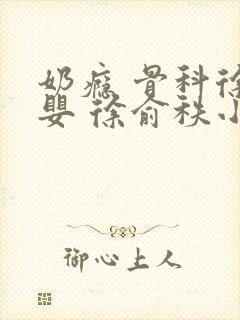 奶瘾 骨科徐
婴 徐俞秩小
御心上人